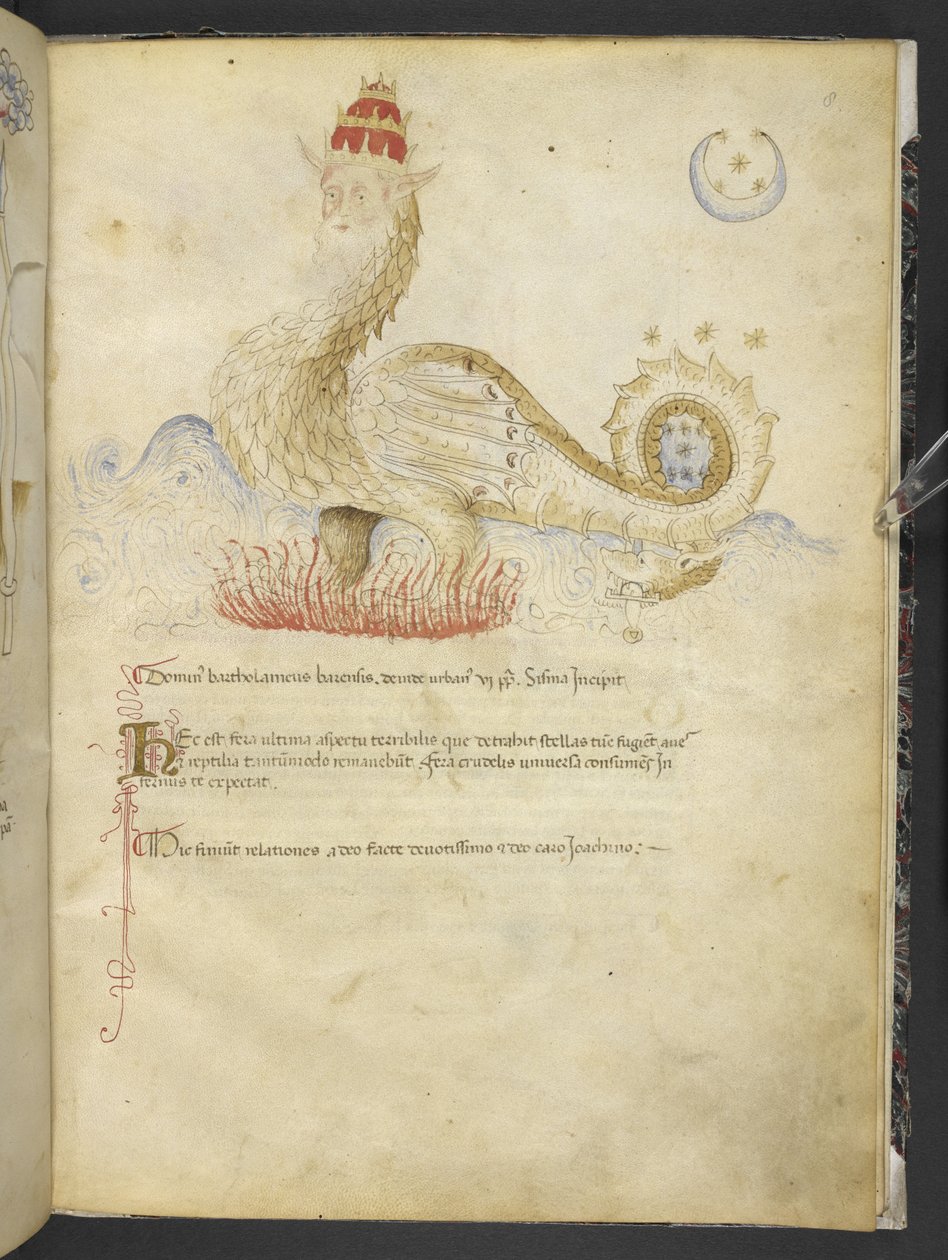 8.
Domin᾽ bartholameus barensis. deinde urban᾽ vi pp̄. Sisma Incipit
HEc est fera ultima aspectu terribilis que detrahit stellas tūc fugiēt aues
⁊ reptilia tantūmodo remanebūt. Fera crudelis universa consumēs In
fernus te expectat.
Hic finiūt relationes a deo facte devotissimo ⁊ deo caro Joachino:—